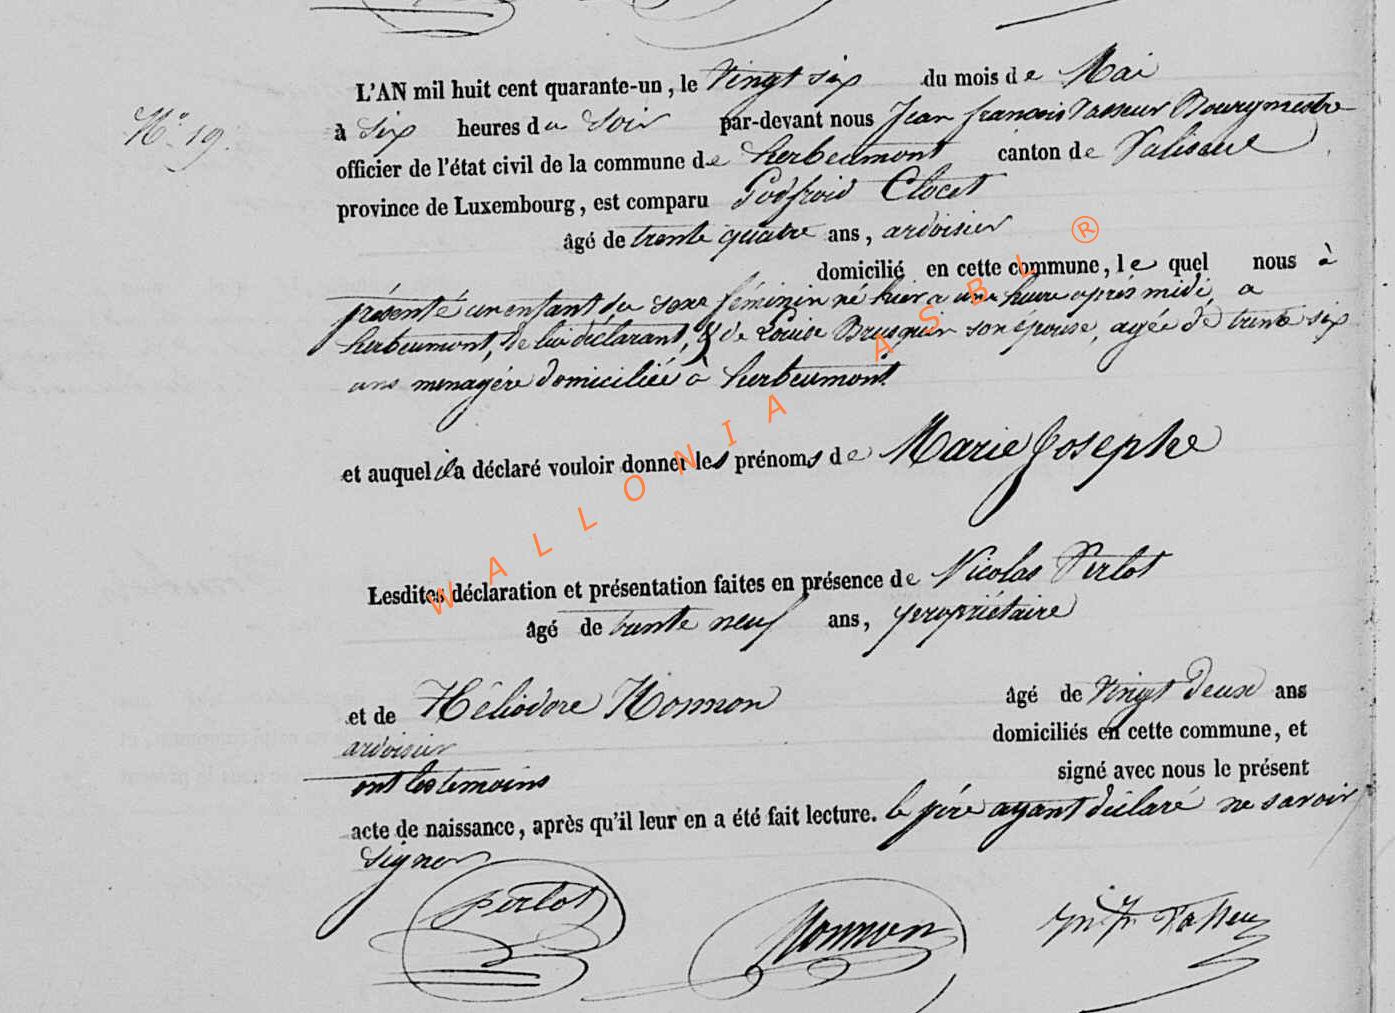 L'AN mil huit cent quarante-un, le Vingt six du mois de Mai
N° 19.
à Six heures du Soir par-devant nous Jean françois Vasseur Bourgmestre
officier de l'état civil de la commune de herbeumont canton de Paliseul
province de Luxembourg, est comparu Godfroid Clocet
âgé de trente quatre ans, ardoisier
domicilié en cette commune, le quel nous à
présenté un enfant du sexe féminin né hier a une heure après midi, a
herbeumont, de lui déclarant, & de Louise Brusquin son épouse, agée de trente six
ans menagére domiciliée à herbeumont
et auquel il a déclaré vouloir donner les prénoms de Marie Josephe
Lesdites déclaration et présentation faites en présence de Nicolas Perlot
âgé de trente neuf ans, propriétaire
et de Héliodore Monmon âgé de Vingt Deux ans
ardoisier domiciliés en cette commune, et
ont les temoins signé avec nous le présent
acte de naissance, après qu'il leur en a été fait lecture. le pére ayant déclaré ne savoir
Signer
Perlot Monmon Jn Fr Vasseur
WALLONIA ASBL ®